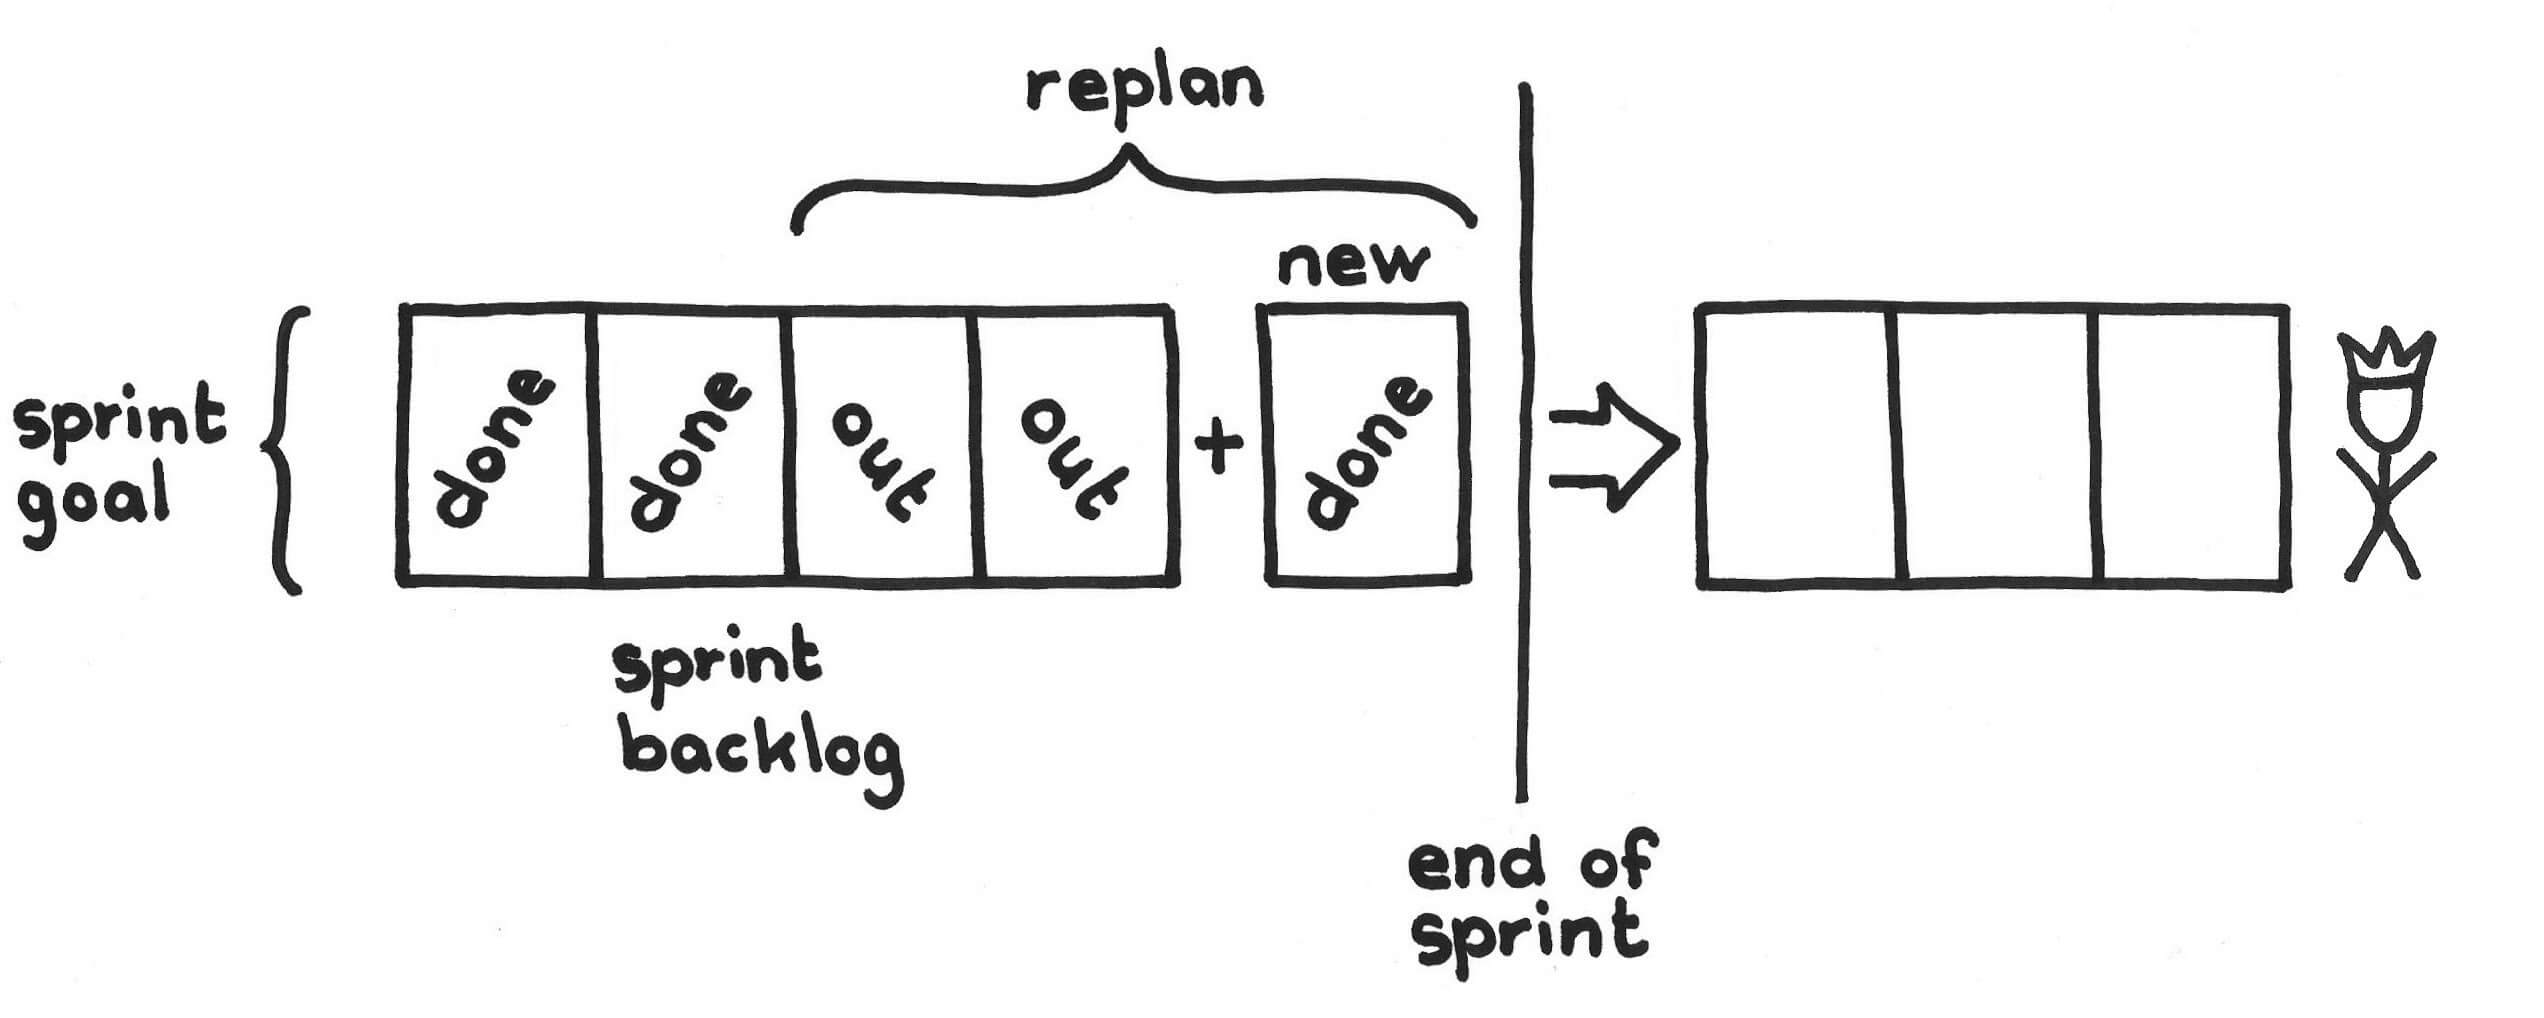 replan
new
sprint
goal
done
done
out
out
+
done
sprint
backlog
end of
sprint